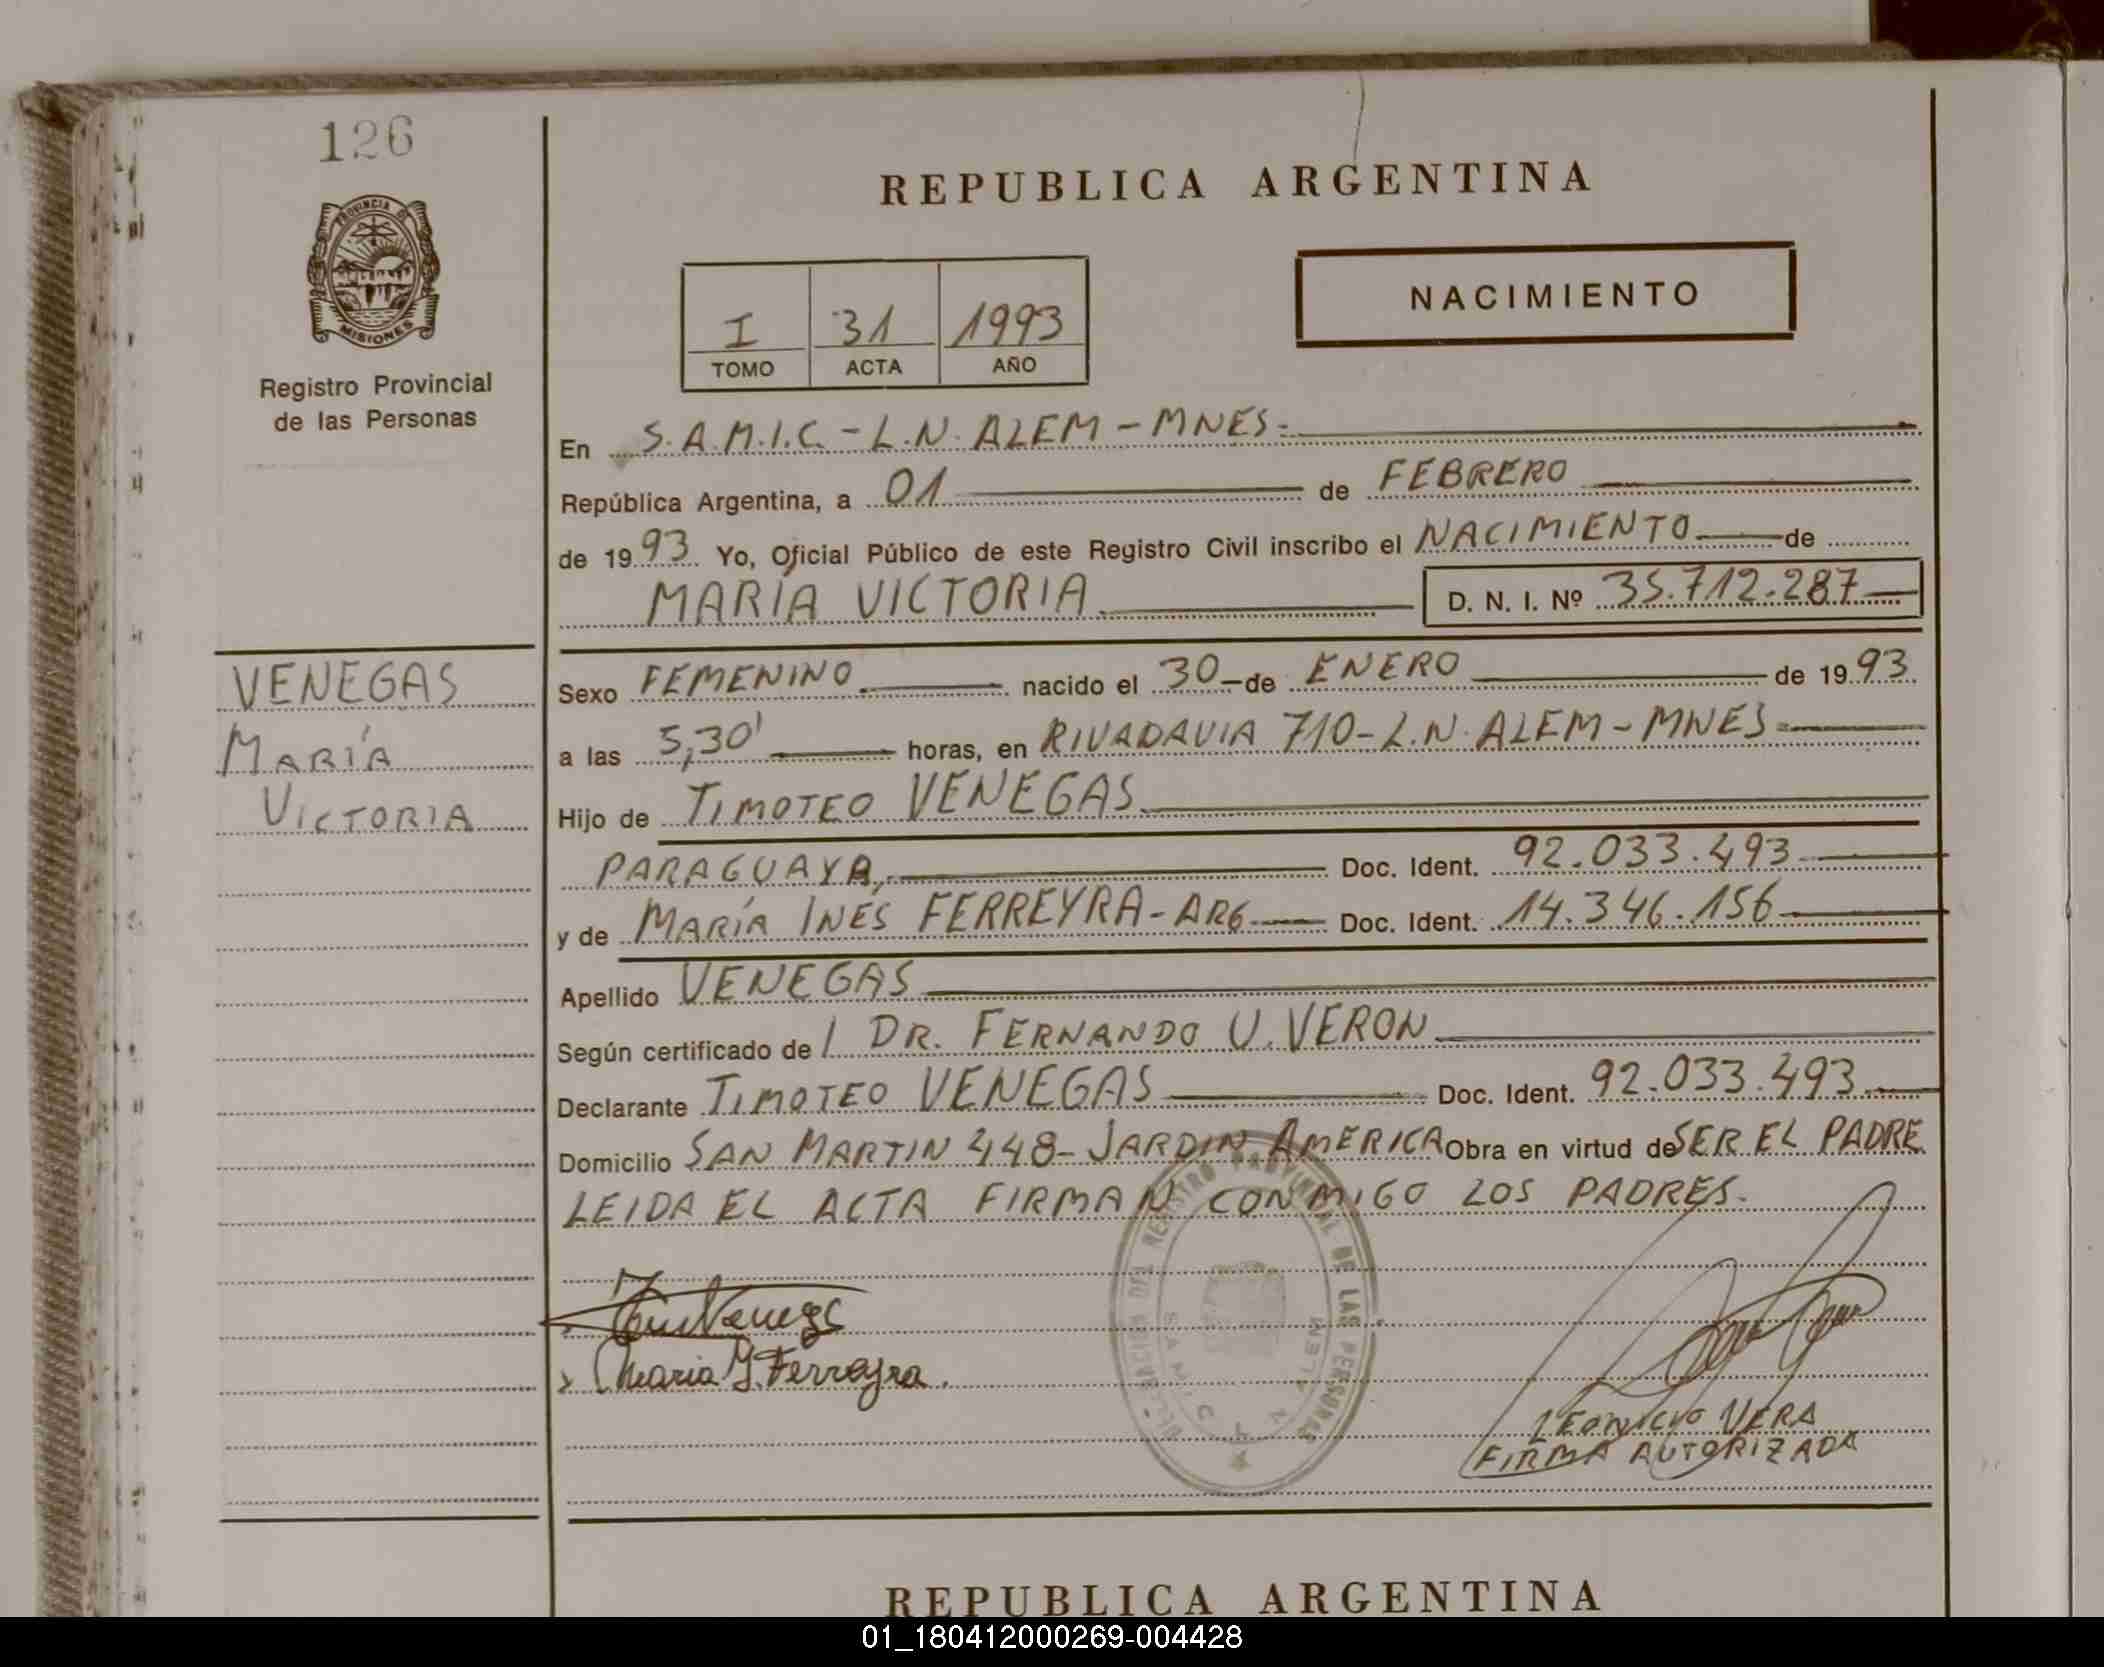 126
REPUBLICA ARGENTINA
PROVINCIA DE
MISIONES
Registro Provincial
de las Personas
I 31 1993
TOMO ACTA AÑO
NACIMIENTO
En S.A.M.I.C. - L.N. ALEM - MNES.
República Argentina, a 01 de FEBRERO
de 1993 Yo, Oficial Público de este Registro Civil inscribo el NACIMIENTO de
MARIA VICTORIA D. N. I. Nº 35.712.287
VENEGAS
MARÍA
VICTORIA
Sexo FEMENINO nacido el 30 de ENERO de 1993
a las 5,30' horas, en RIVADAVIA 710 - L.N. ALEM - MNES
Hijo de TIMOTEO VENEGAS
PARAGUAYA, Doc. Ident. 92.033.493
y de MARÍA INÉS FERREYRA - ARG Doc. Ident. 14.346.156
Apellido VENEGAS
Según certificado de l DR. FERNANDO U. VERON
Declarante TIMOTEO VENEGAS Doc. Ident. 92.033.493
Domicilio SAN MARTIN 448 - JARDIN AMERICA Obra en virtud de SER EL PADRE
LEIDA EL ACTA FIRMAN CONMIGO LOS PADRES.
DELEGACION DEL REGISTRO PROVINCIAL DE LAS PERSONAS
S.A.M.I.C. L. N. ALEM
Maria Y. Ferreyra.
LEONICIO VERA
FIRMA AUTORIZADA
REPUBLICA ARGENTINA
01_180412000269-004428